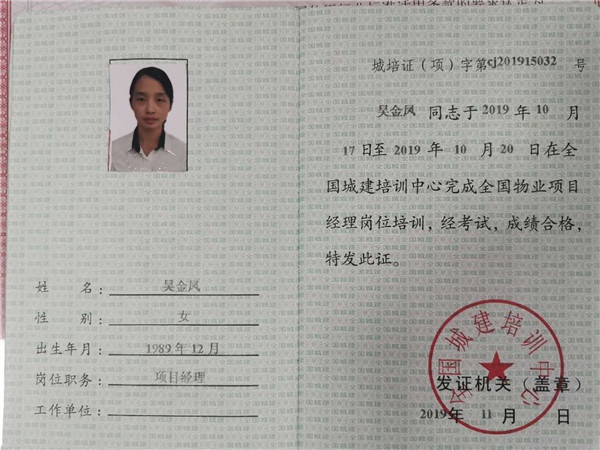 姓 名：吴金凤
性 别：女
出生年月：1989年12月
岗位职务：项目经理
工作单位：
城培证（项）字第cj201915032 号
吴金凤 同志于2019 年 10 月
17日至 2019 年 10 月 20 日在全
国城建培训中心完成全国物业项目
经理岗位培训，经考试，成绩合格，
特发此证。
全国城建培训中心
发证机关（盖章）
2019年 11 月 日